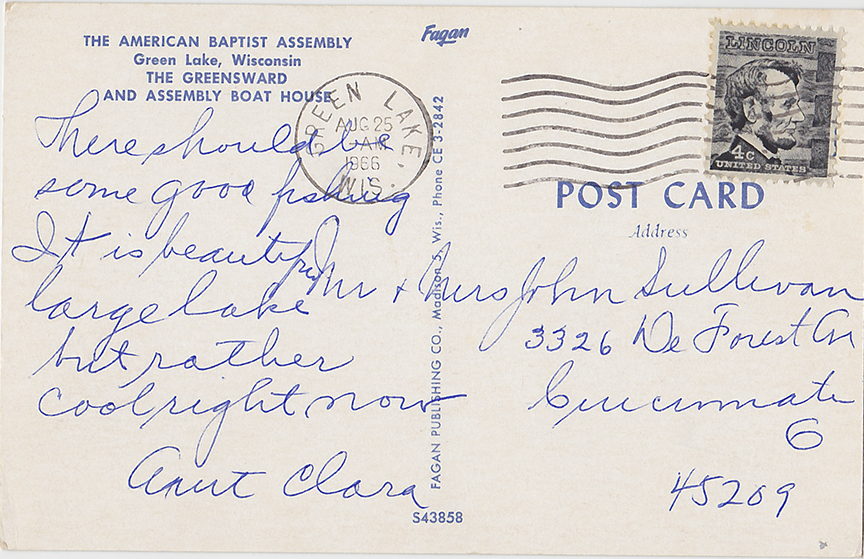 THE AMERICAN BAPTIST ASSEMBLY
Green Lake, Wisconsin
THE GREENSWARD
AND ASSEMBLY BOAT HOUSE
Fagan
GREEN LAKE,
AUG 25
AM
1966
WIS.
LINCOLN
4c
UNITED STATES
There should be
some good fishing
It is beautiful
large lake
but rather
cool right now
Aunt Clara
FAGAN PUBLISHING CO., Madison 5, Wis., Phone CE 3-2842
S43858
POST CARD
Address
Mr + Mrs John Sullivan
3326 De Forest
Cincinnati
6
45209